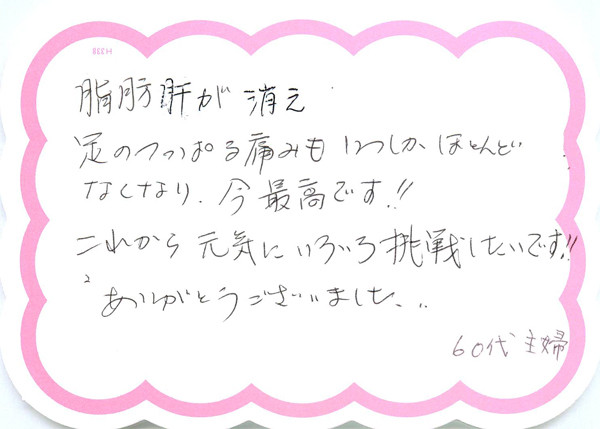 脂肪肝が 消え
足のつっぱる痛みも いつしか、ほとんど
なくなり、今 最高です!!
これから 元気に いろいろ 挑戦したいです!!
ありがとうございました..
60代 主婦